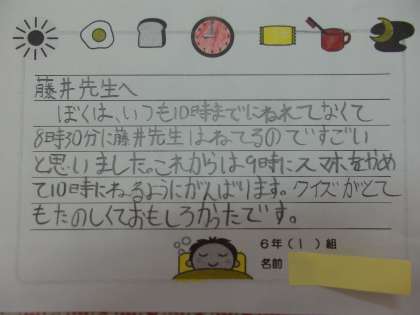 藤井先生へ
ぼくは、いつも10時までにねれてなくて
8時30分に藤井先生はねてるのですごい
と思いました。これからは9時にスマホをやめ
て10時にねるようにがんばります。クイズがとて
もたのしくておもしろかったです。
6年(1)組
名前